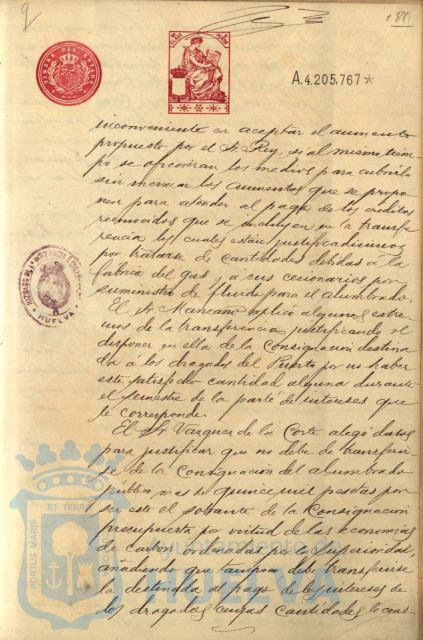 A.4.205.767*
TIMBRE DEL ESTADO
inconveniente en aceptar el aumento
propuesto por el Sr. Rey, si al mismo tiem-
po se ofrecieran los medios para cubrirlo
sin mermar los aumentos que se propo-
nen para atender al pago de los creditos
reconocidos que se incluyen en la transfe-
rencia los cuales están justificadisimos
por tratarse de cantidades debidas á la
fabrica del gas y á sus cesionarios por
suministro de fluido para el alumbrado.
El Sr. Manzano esplicó algunos extre-
mos de la transferencia, justificando el
disponer en ella de la Consignacion destina-
da á los dragados del Puerto por no haber
este satisfecho cantidad alguna durante
el semestre de la parte de intereses que
le corresponde.
El Sr. Vazquez de la Corte alegó datos
para justificar que no debe de transferir-
se de la Consignacion del alumbrado
público, mas de quince mil pesetas por
ser este el sobrante de la Consignacion
presupuesta por virtud de las economias
de carbon ordenadas por la superioridad,
añadiendo que tampoco debe transferirse
la destinada al pago de los intereses de
los dragados, cuyas cantidades le cons-
HUELVA
PORTUS MARIS ET TERRAE
Ayuntamiento de
HUELVA